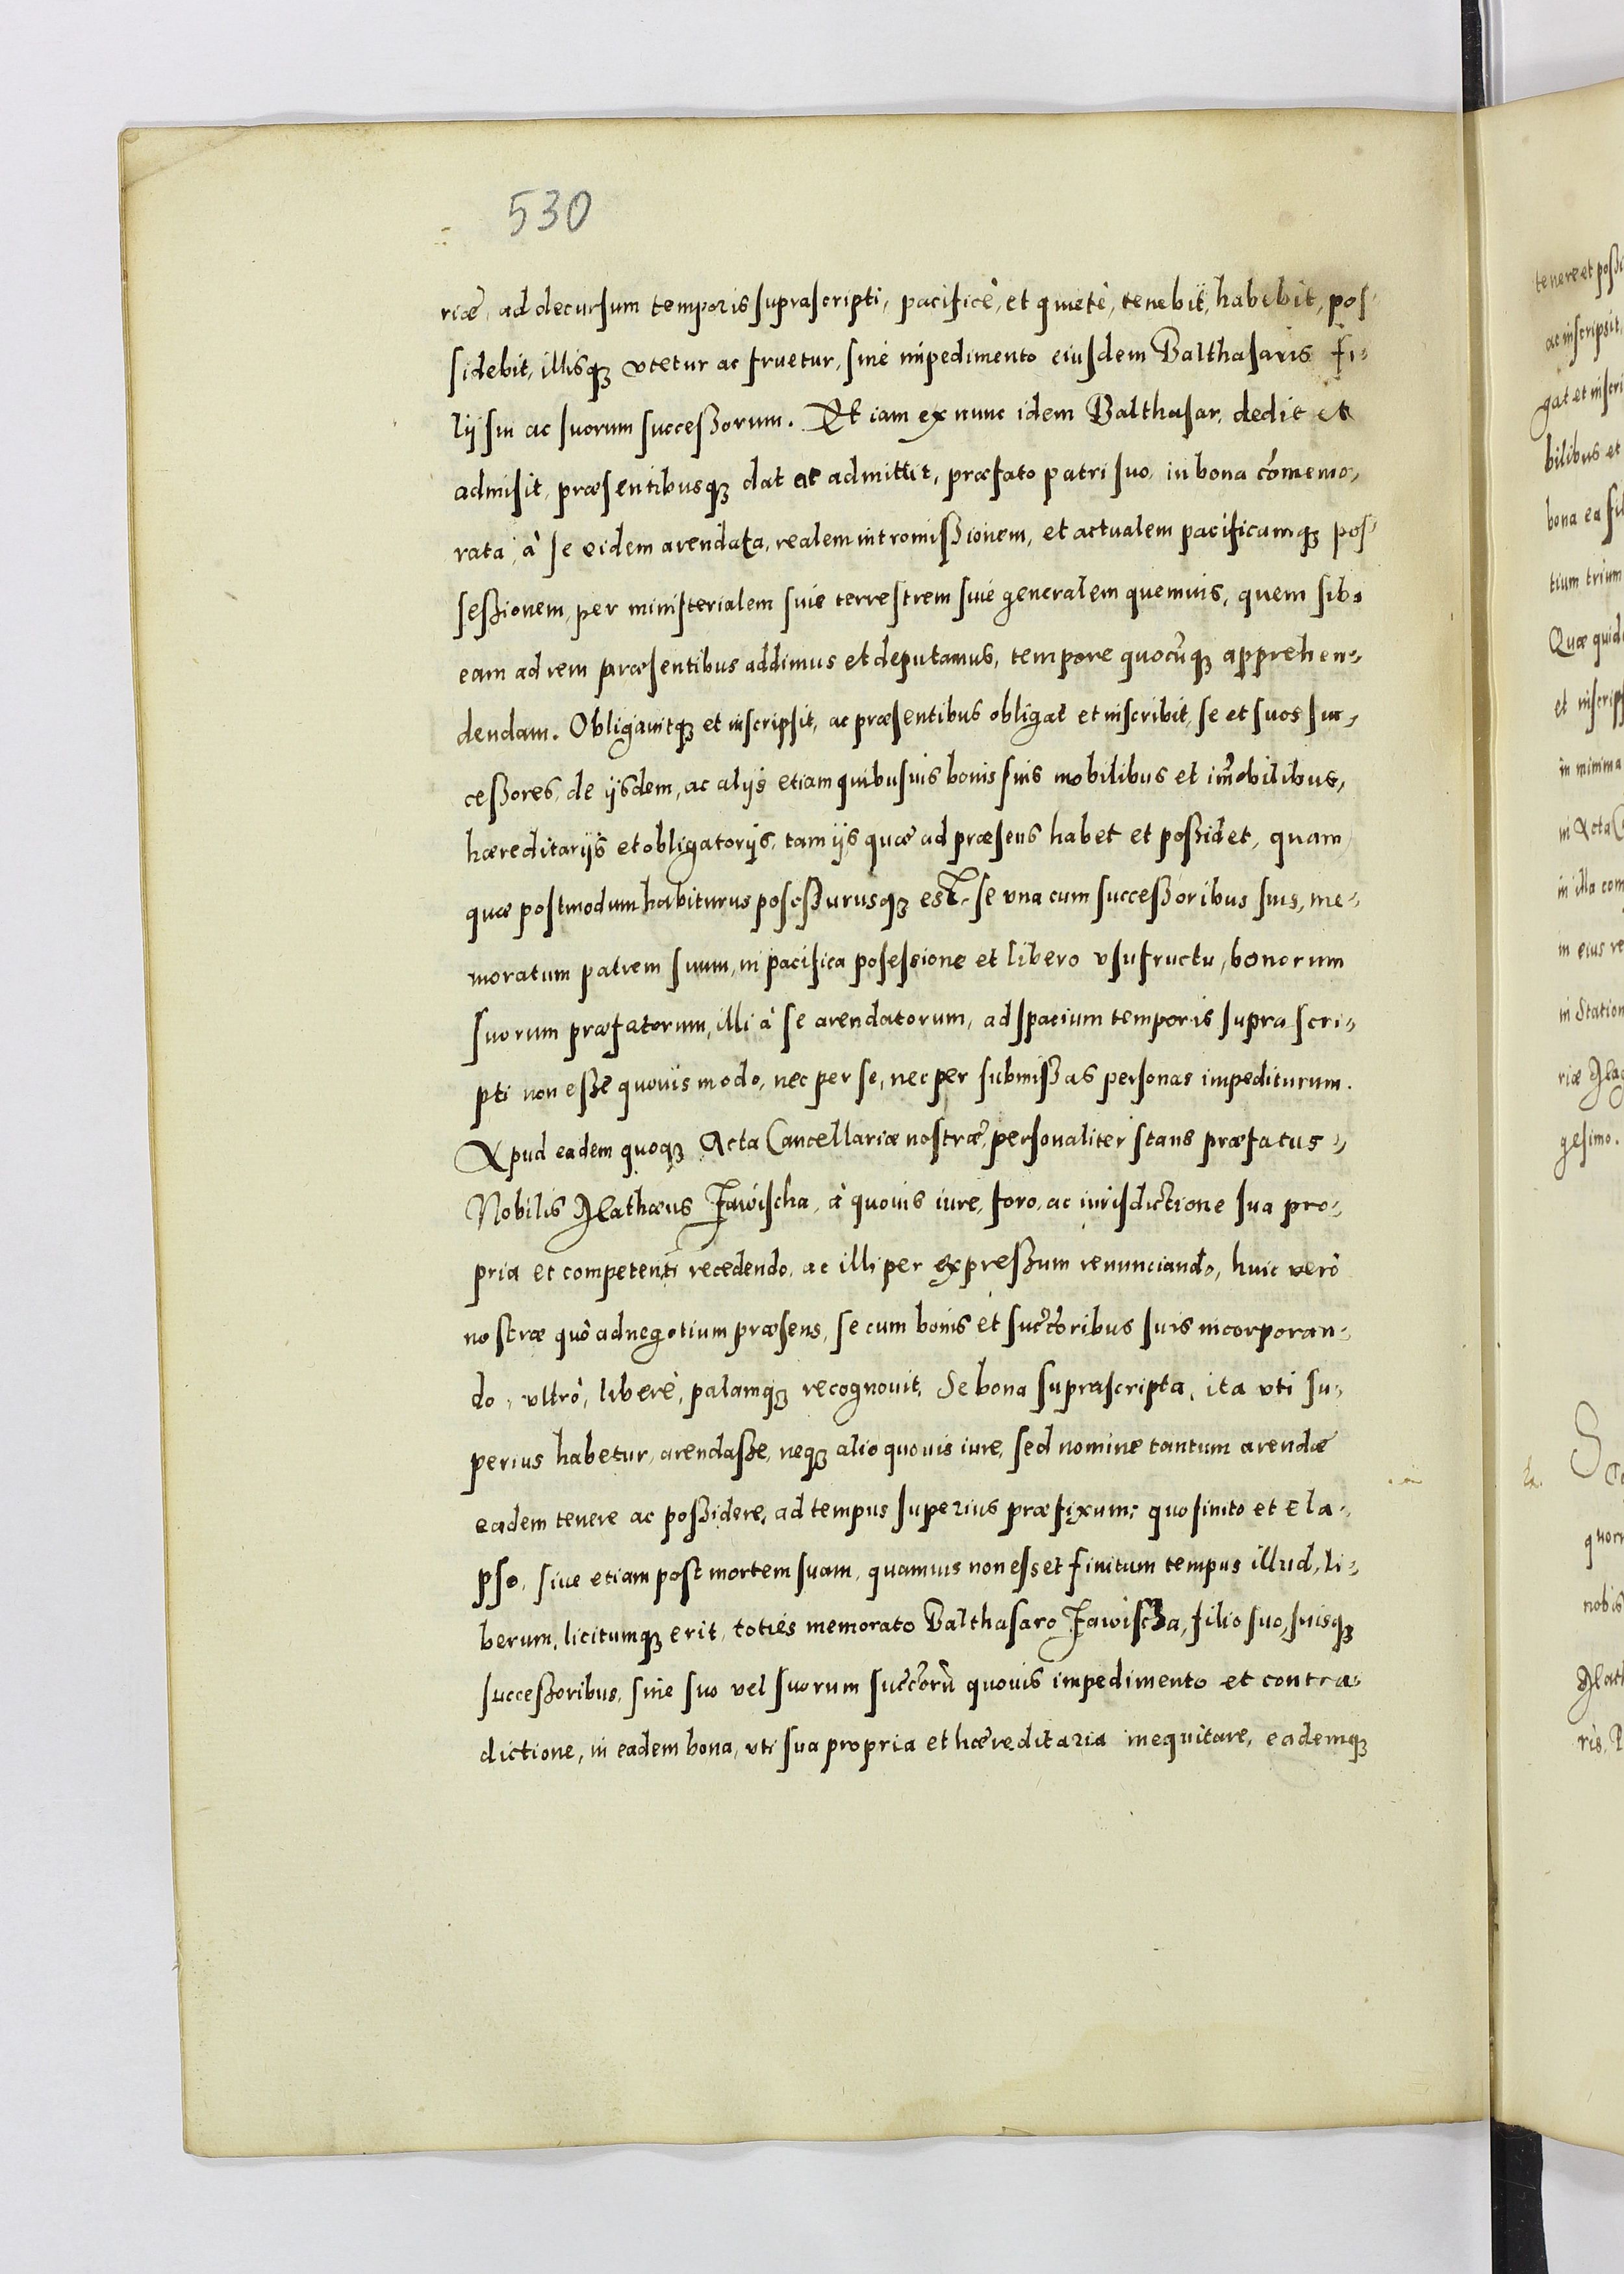 530
riæ, ad decursum temporis suprascripti, pacificè, et quietè, tenebit, habebit, pos-
sidebit, illisq; vtetur ac fruetur, sine impedimento eiusdem Balthasaris fi-
lij sui ac suorum successorum. Et iam ex nunc idem Balthasar, dedit et
admisit, præsentibusq; dat at admittit, præfato patri suo, in bona com̃emo-
rata, à se eidem arendata, realem intromissionem, et actualem pacificamq; pos-
sessionem, per ministerialem siue terrestrem siue generalem quemuis, quem sibi
eam ad rem præsentibus addimus et deputamus, tempore quocũq; apprehen-
dendam. Obligauitq; et inscripsit, ac præsentibus obligat et inscribit, se et suos suc-
cessores, de ijsdem, ac alijs etiam quibusuis bonis suis mobilibus et im̃obilibus,
hæreditarijs et obligatorijs, tam ijs quæ ad præsens habet et possidet, quam
quæ postmodum habiturus posessurusq; est, se vna cum successoribus suis, me-
moratum patrem suum, in pacifica posessione et libero vsufructu, bonorum
suorum præfatorum, illi à se arendatorum, ad spacium temporis suprascri-
pti non esse quouis modo, nec per se, nec per submissas personas impediturum.
Apud eadem quoq; Acta Cancellariæ nostræ, personaliter stans præfatus
Nobilis Mathæus Jawischa, à quouis iure, foro, ac iurisdictione sua pro-
pria et competenti recedendo, ac illi per expressum renunciando, huic verò
nostræ quò ad negotium præsens, se cum bonis et succ̃oribus suis incorporan-
do, vltrò, liberè, palamq; recognouit, Se bona suprascripta, ita vti su-
perius habetur, arendasse, neq; alio quouis iure, sed nomine tantum arendæ
eadem tenere ac possidere, ad tempus superius præfixum: quo finito et ela-
pso, siue etiam post mortem suam, quamuis non esset finitum tempus illud, li-
berum, licitumq; erit, toties memorato Balthasaro Jawischa, filio suo, suisq;
successoribus, sine suo vel suorum succ̃orũ quouis impedimento et contra-
dictione, in eadem bona, vti sua propria et hæreditaria inequitare, eademq;
tenere et possi
ac inscripsit,
gat et inscri
bilibus et
bona ea
tium trium
Quæ quid
et inscrips
in minima
in Acta
in illa com
in eius re
in Station
riæ
gesimo.
nobis
ris,